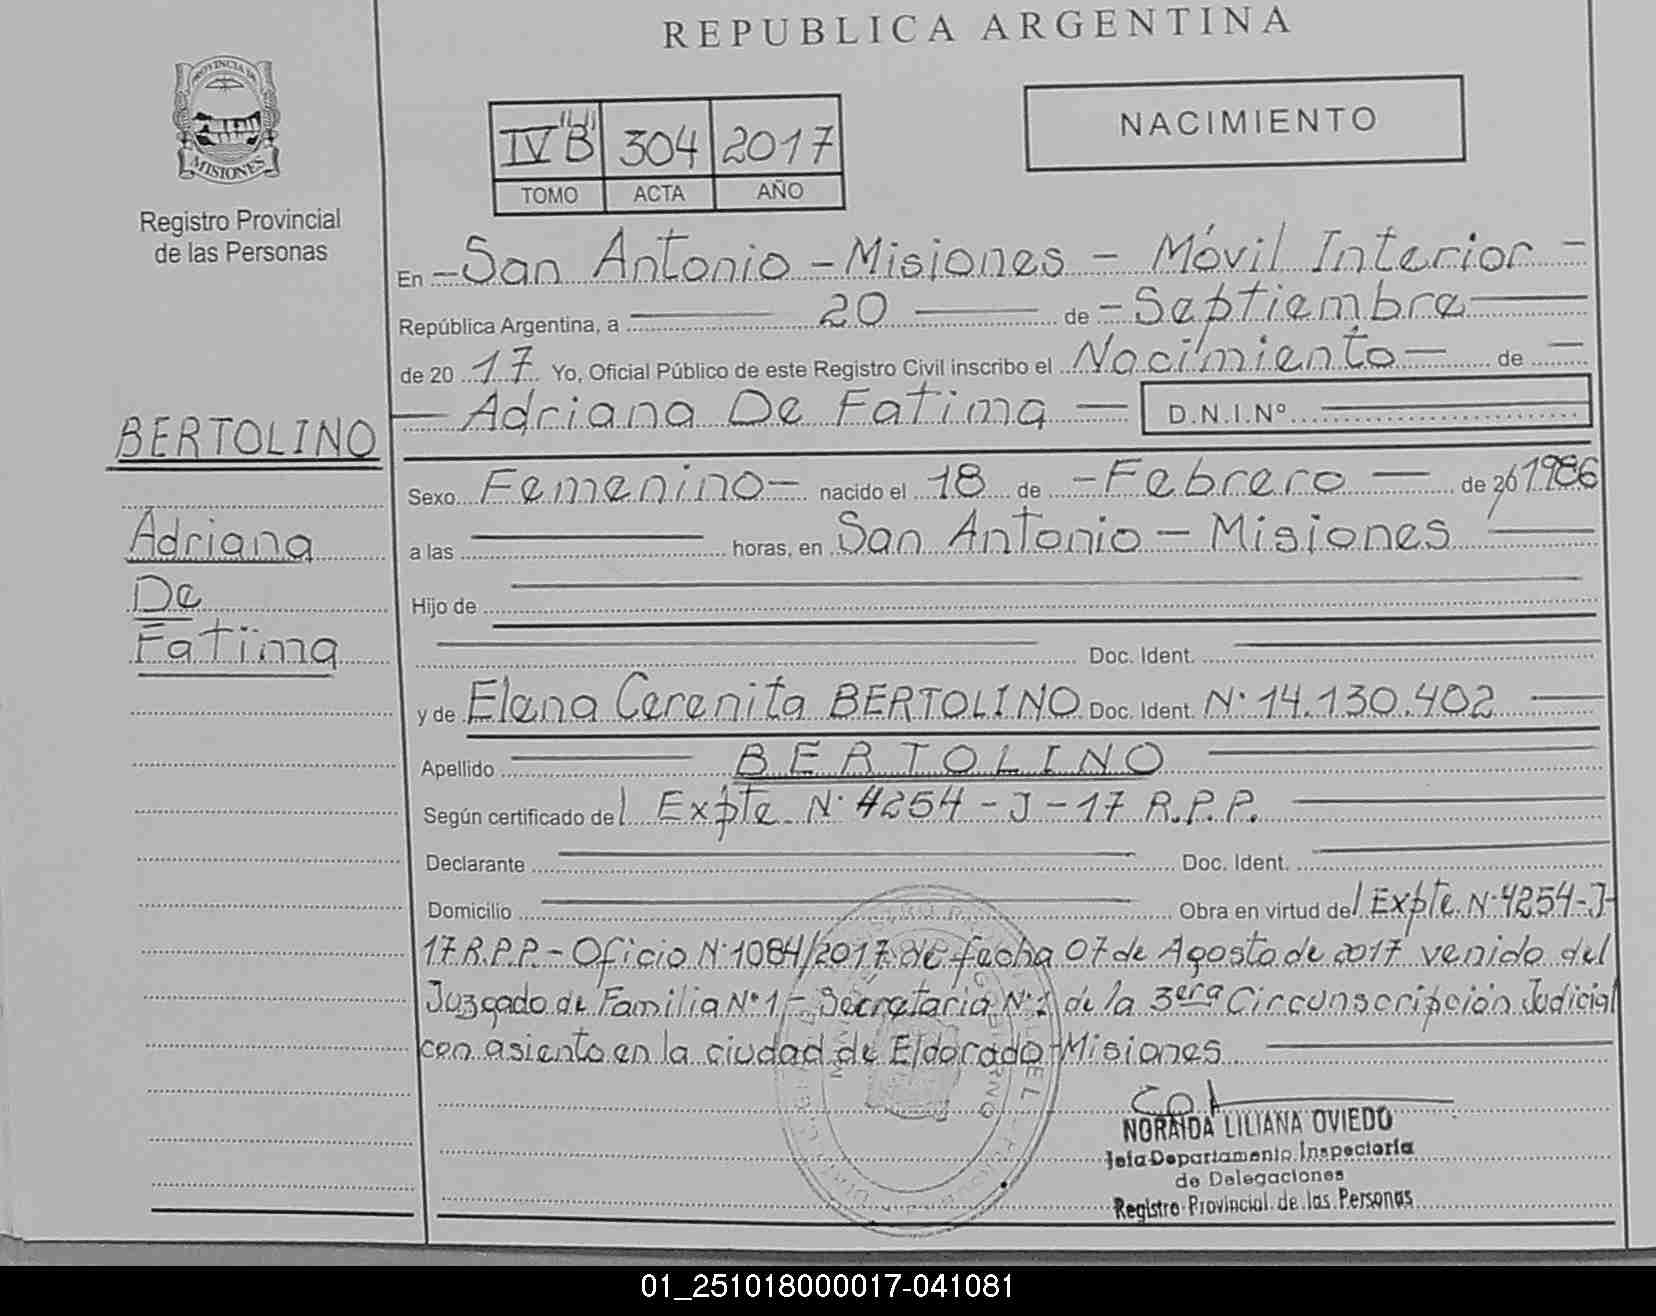 REPUBLICA ARGENTINA
PROVINCIA DE
MISIONES
Registro Provincial
de las Personas
IV"B" 304 2017
TOMO ACTA AÑO
NACIMIENTO
En - San Antonio - Misiones - Móvil Interior -
República Argentina, a 20 de - Septiembre
de 20 17 Yo, Oficial Público de este Registro Civil inscribo el Nacimiento - de
Adriana De Fatima D.N.I.Nº
BERTOLINO
Adriana
De
Fatima
Sexo Femenino - nacido el 18 de - Febrero - de 20 1986
a las horas, en San Antonio - Misiones
Hijo de
Doc. Ident.
y de Elena Cerenita BERTOLINO Doc. Ident. Nº 14.130.402
Apellido BERTOLINO
Según certificado del Expte Nº 4254 - J - 17 R.P.P.
Declarante Doc. Ident.
Domicilio Obra en virtud del Expte. Nº 4254-J-
17 R.P.P. - Oficio Nº 1084/2017 de fecha 07 de Agosto de 2017 venido del
Juzgado de Familia Nº 1 - Secretaria Nº 1 de la 3era Circunscripción Judicial
con asiento en la ciudad de Eldorado - Misiones
NORAIDA LILIANA OVIEDO
Jefa Departamento Inspectoría
de Delegaciones
Registro Provincial de las Personas
01_251018000017-041081